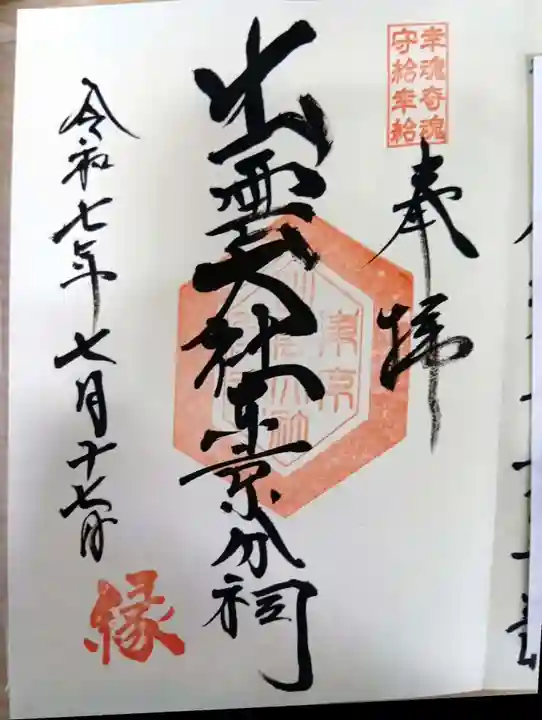 幸魂奇魂
守給幸給
奉拝
出雲大社東京分祠
令和七年七月十七日
縁